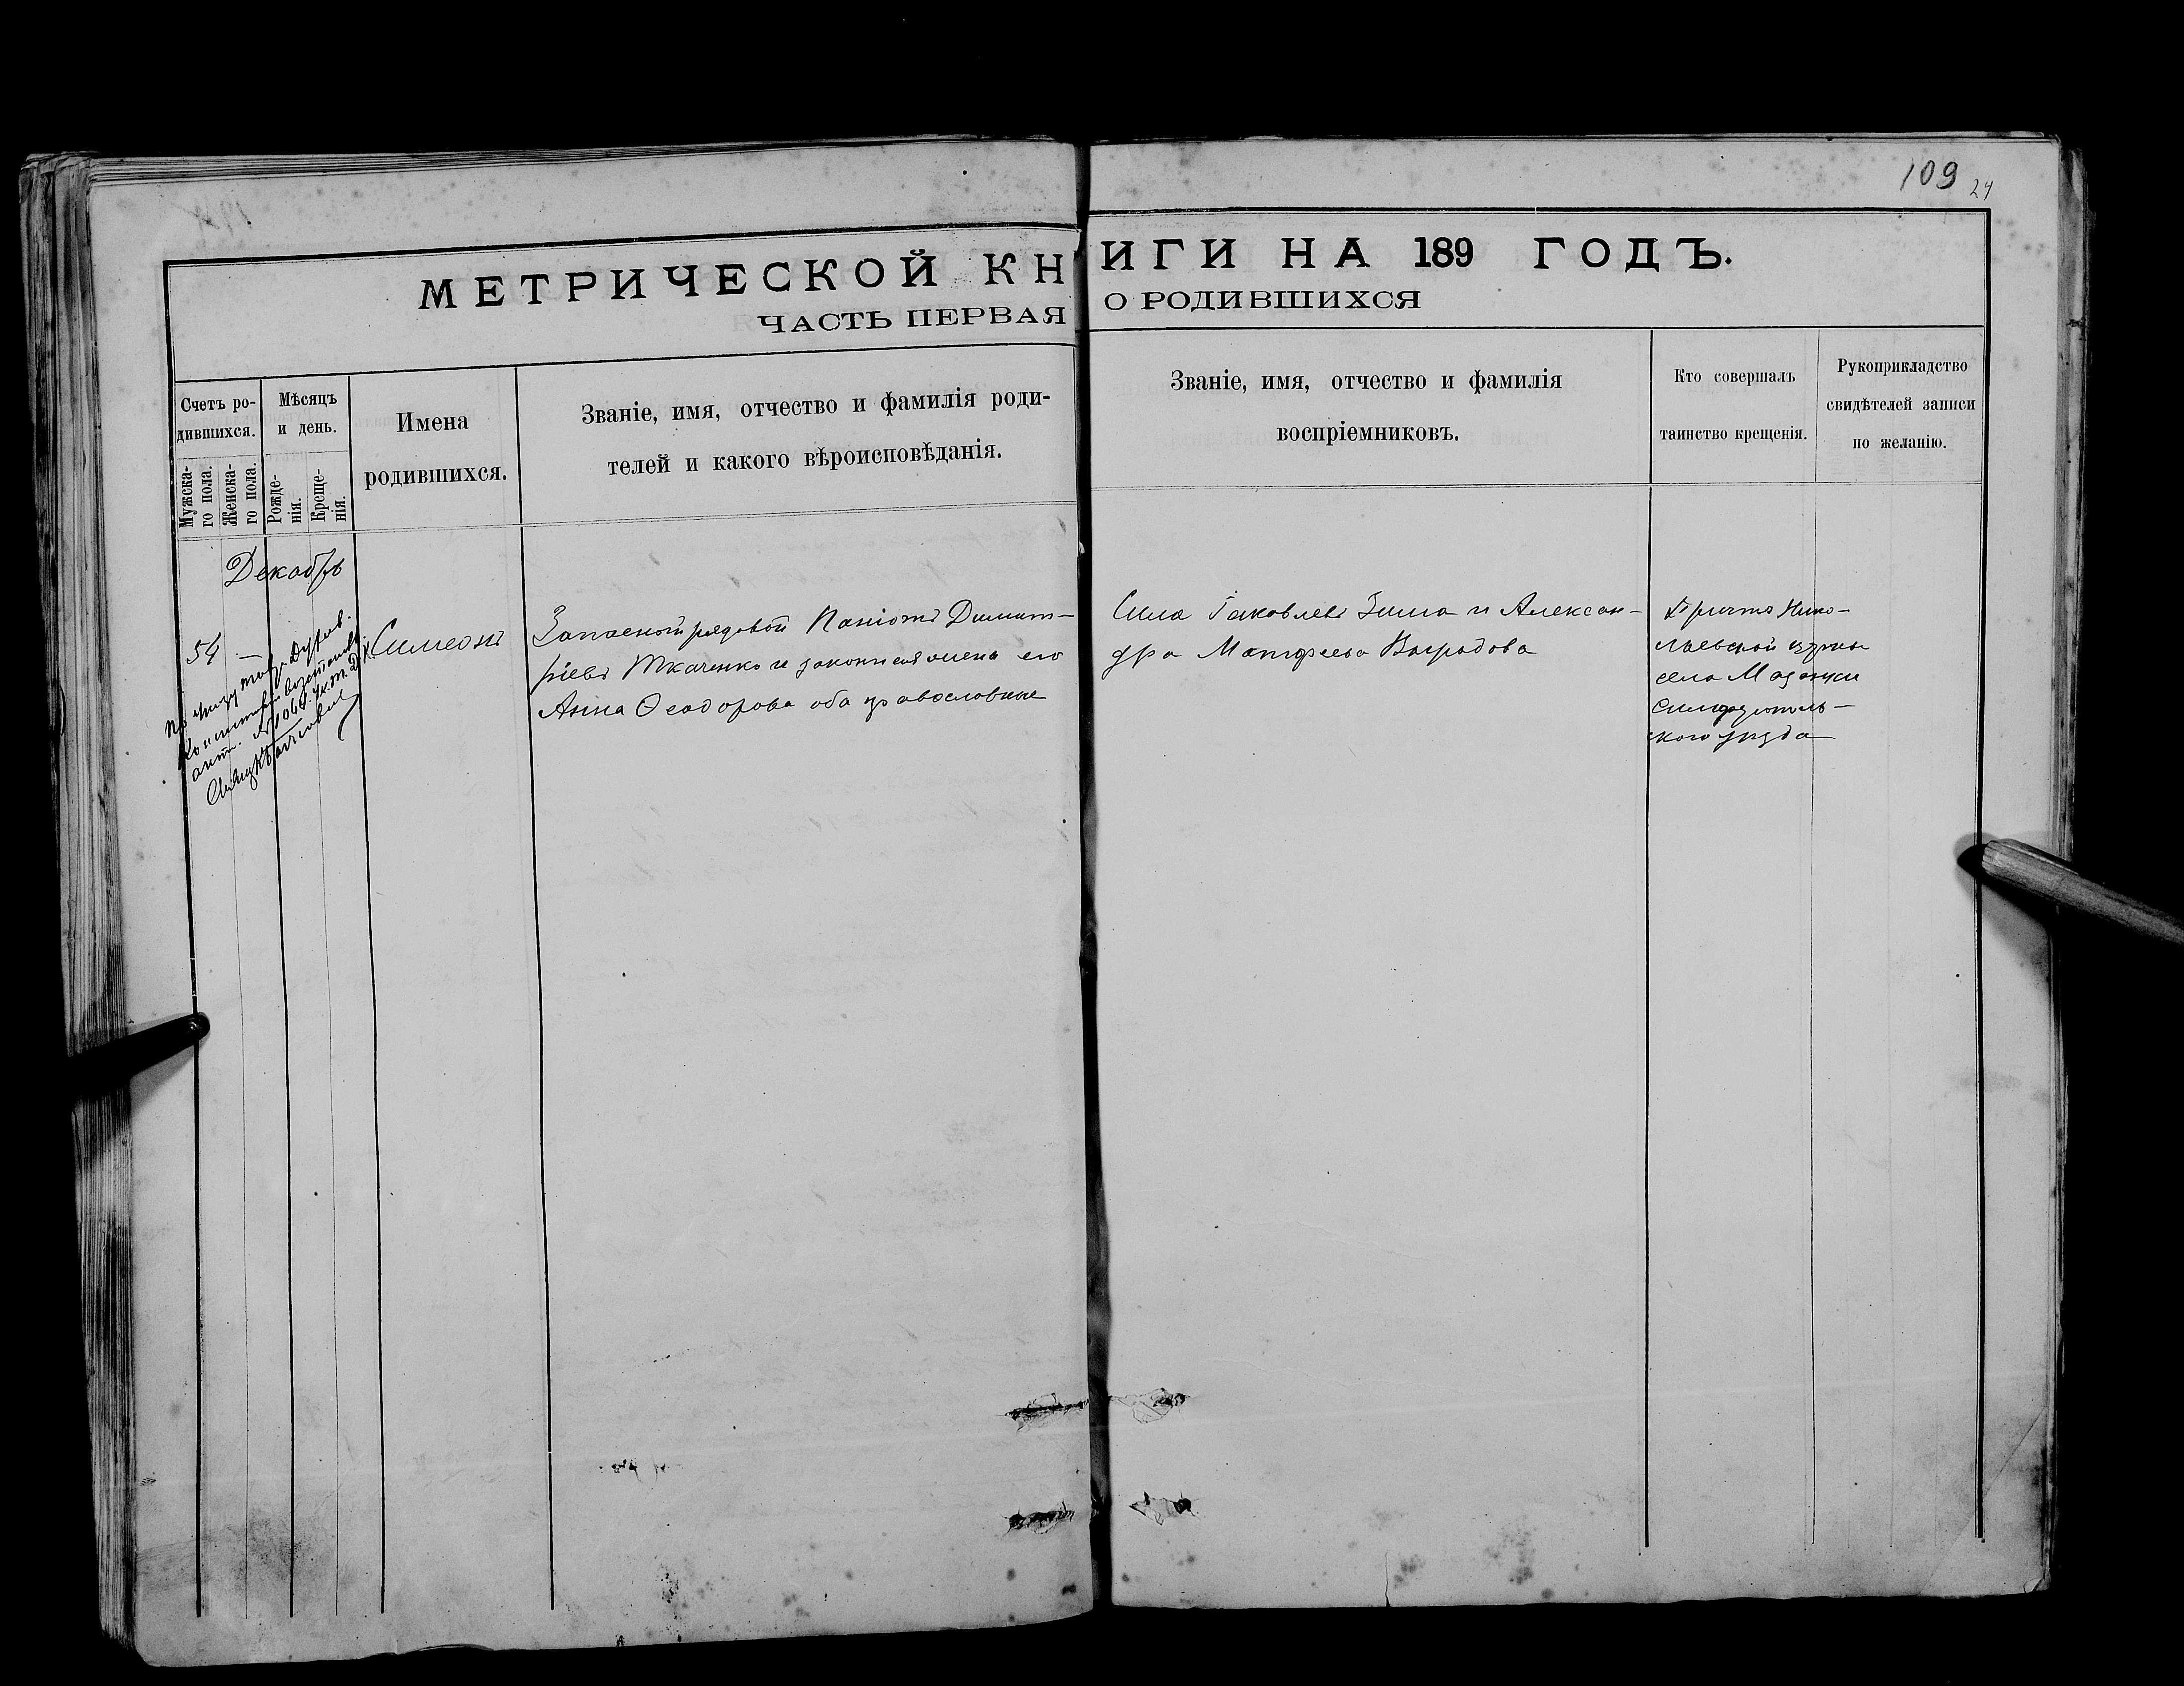 109 24
МЕТРИЧЕСКОЙ КНИГИ НА 189 ГОДЪ.
ЧАСТЬ ПЕРВАЯ О РОДИВШИХСЯ
Счетъ ро-
дившихся.
Мужска-
го пола.
Женска-
го пола.
Мѣсяцъ
и день.
Рожде-
нія.
Креще-
нія.
Имена
родившихся.
Званіе, имя, отчество и фамилія роди-
телей и какого вѣроисповѣданія.
Званіе, имя, отчество и фамилія
воспріемниковъ.
Кто совершалъ
таинство крещенія.
Рукоприкладство
свидѣтелей записи
по желанію.
Декабрь
54 —
Симеонъ
Запасной рядовой Димит-
ріевъ Ткаченко и законная жена его
Анна Ѳеодорова оба православные
Сила Іаковлевъ Зима и Алексан-
дра Матфеева
Причтъ Нико-
лаевской церкви
села Мазанки
Симферополь-
скаго уѣзда